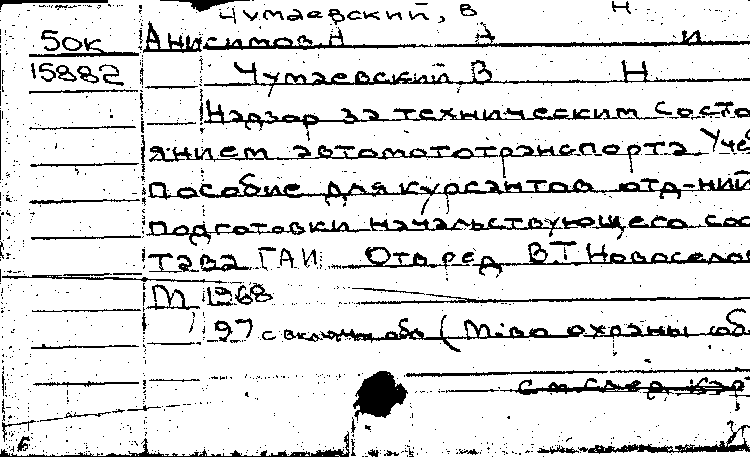 Чумаевский, В Н
50к Анисимов А А и
15882 Чумаевский, В Н
Надзор за техническим состо
янием автомототранспорта Уче
пособие для курсантов отд-ний
подготовки начальствующего сос
тава ГАИ Отв ред В.Т. Новоселов
М 1968
97 с включ обл (М-во охраны об
см след кар